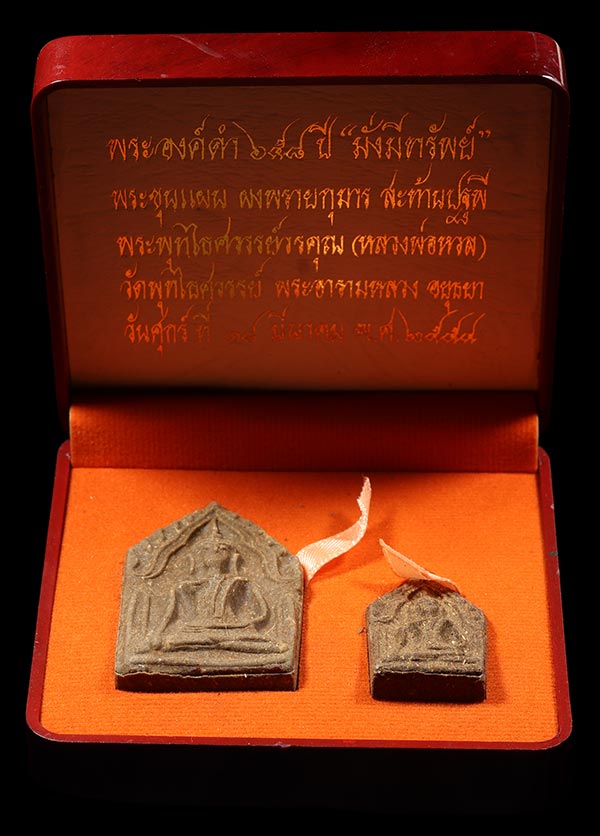 พระองค์ดำ ๖๕๘ ปี “มั่งมีทรัพย์”
พระขุนแผน ผงพรายกุมาร สะท้านปฐพี
พระพุทไธศวรรย์วรคุณ (หลวงพ่อหวล)
วัดพุทไธศวรรย์ พระอารามหลวง อยุธยา
วันศุกร์ ที่ ๑๘ มีนาคม พ.ศ. ๒๕๕๔